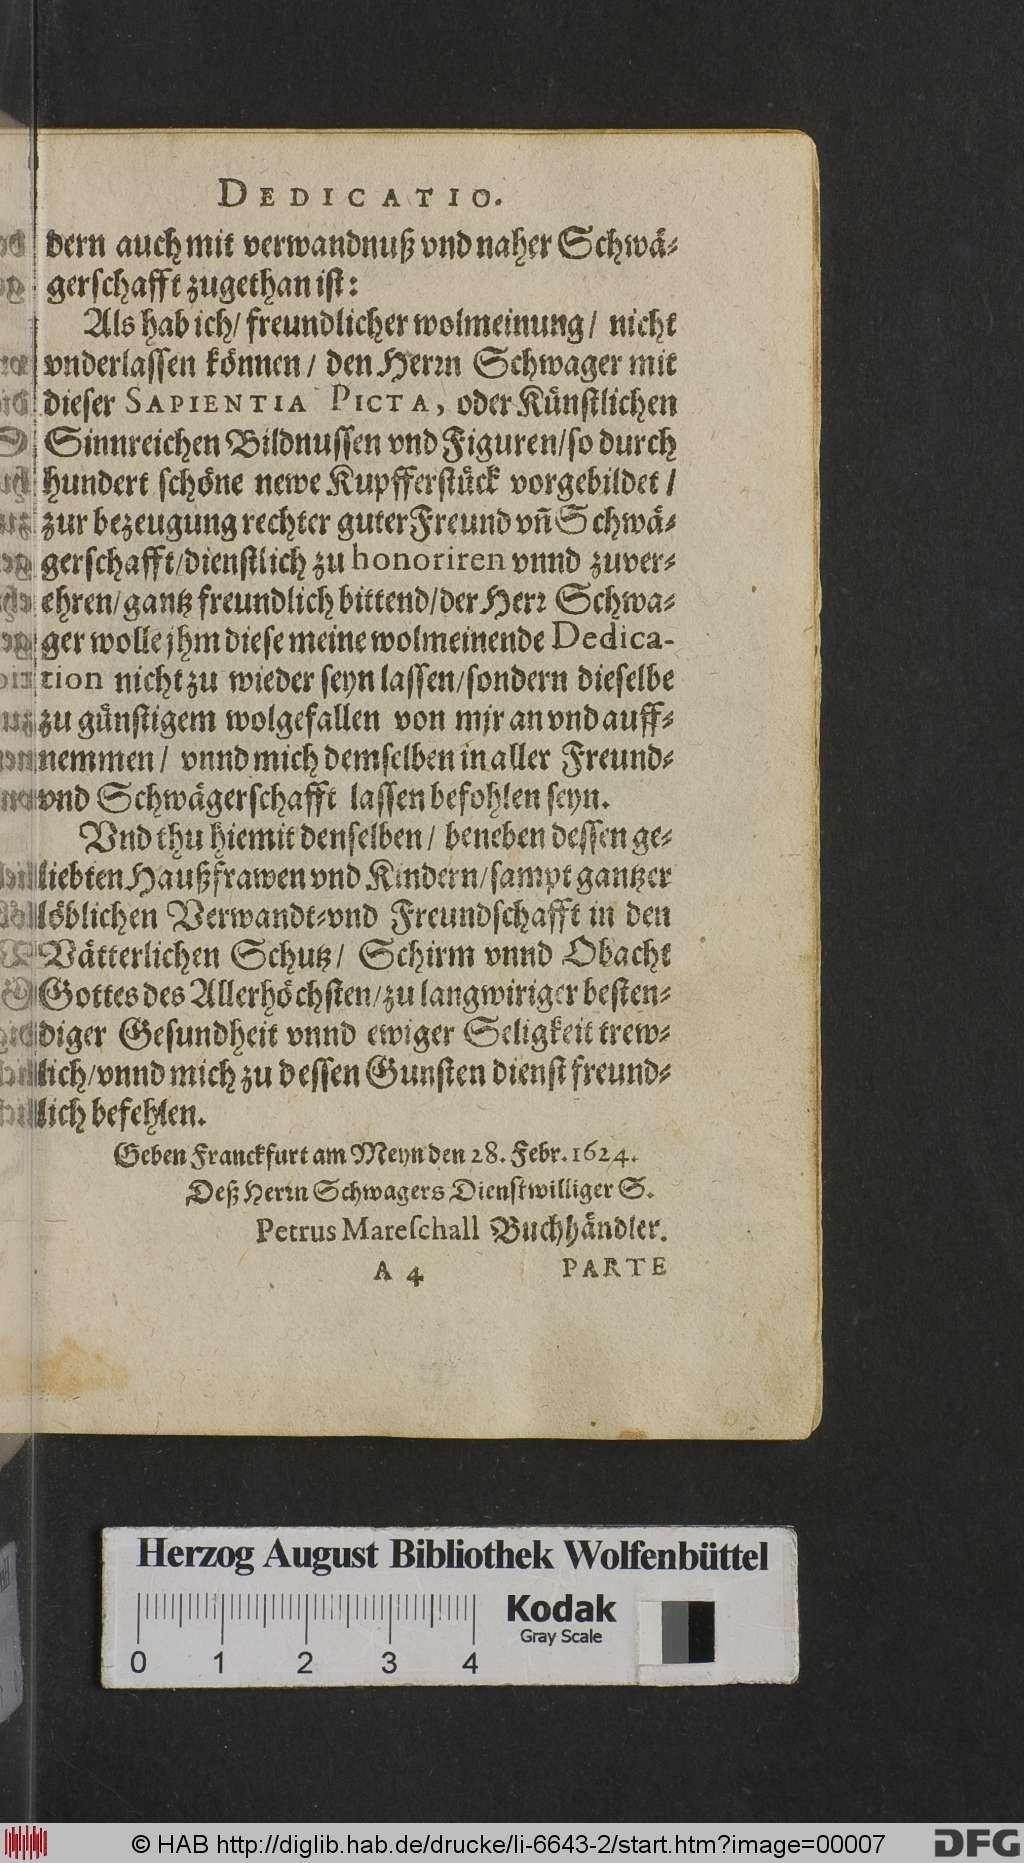 DEDICATIO.
dern auch mit verwandnuß vnd naher Schwä-
gerschafft zugethan ist:
Als hab ich/ freundlicher wolmeinung/ nicht
vnderlassen können/ den Herrn Schwager mit
dieser SAPIENTIA PICTA, oder Künstlichen
Sinnreichen Bildnussen vnd Figuren/so durch
hundert schöne newe Kupfferstück vorgebildet/
zur bezeugung rechter guter Freund vn̄ Schwä-
gerschafft/dienstlich zu honoriren vnnd zuver-
ehren/gantz freundlich bittend/der Herr Schwa-
ger wolle jhm diese meine wolmeinende Dedica-
tion nicht zu wieder seyn lassen/sondern dieselbe
zu günstigem wolgefallen von mjr an vnd auff-
nemmen/ vnnd mich demselben in aller Freund-
vnd Schwägerschafft lassen befohlen seyn.
Vnd thu hiemit denselben/ beneben dessen ge-
liebten Haußfrawen vnd Kindern/sampt gantzer
löblichen Verwandt-vnd Freundschafft in den
Vätterlichen Schutz/ Schirm vnnd Obacht
Gottes des Allerhöchsten/zu langwiriger besten-
diger Gesundheit vnnd ewiger Seligkeit trew-
lich/vnnd mich zu dessen Gunsten dienst freund-
lich befehlen.
Geben Franckfurt am Meyn den 28. Febr. 1624.
Deß Herrn Schwagers Dienstwilliger S.
Petrus Mareſchall Buchhändler.
A 4 PARTE
Herzog August Bibliothek Wolfenbüttel
Kodak
Gray Scale
0 1 2 3 4
© HAB http://diglib.hab.de/drucke/li-6643-2/start.htm?image=00007
DFG